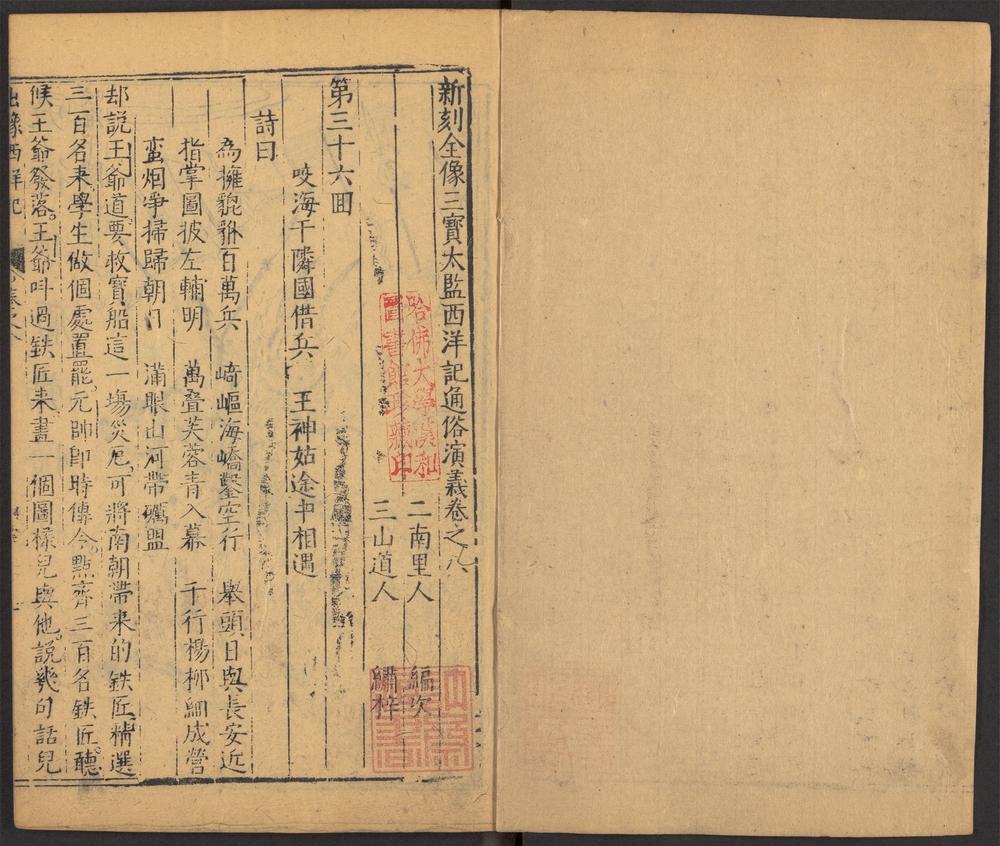 新刻全像三寶太監西洋記通俗演義卷之八
二南里人 編次
三山道人 繡梓
哈佛大學漢和圖書館珍藏印
第三十六回
咬海干隣國借兵 王神姑途中相遇
詩曰
為擁貔貅百萬兵 崎嶇海嶠鑿空行 舉頭日與長安近
指掌圖披左輔明 萬叠芙蓉青入幕 千行楊柳細成營
蛮烟爭掃歸朝日 滿眼山河帶礪盟
却說王爺道要救寶船這一塲災厄可將南朝帶来的鉄匠精選
三百名来學生做個處置罷元帥即時傳令點齊三百名鉄匠聽
候王爺發落王爺呌過鉄匠来畫一個圖樣兒與他說幾句話兒
出像西洋記 卷之八